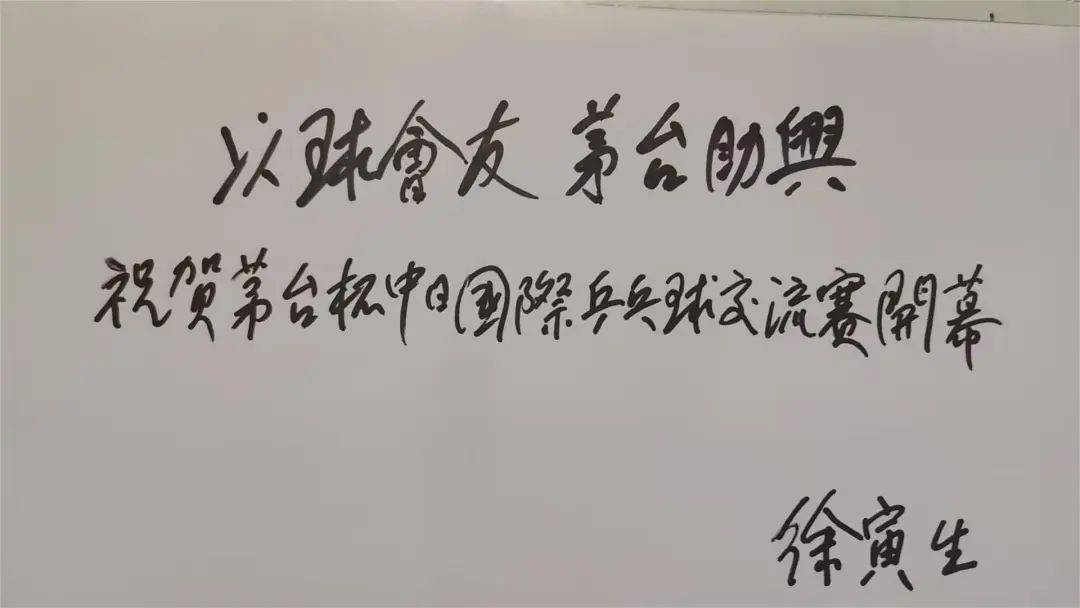 以球會友 茅台助興
祝賀茅台杯中日國際乒乓球交流賽開幕
徐寅生